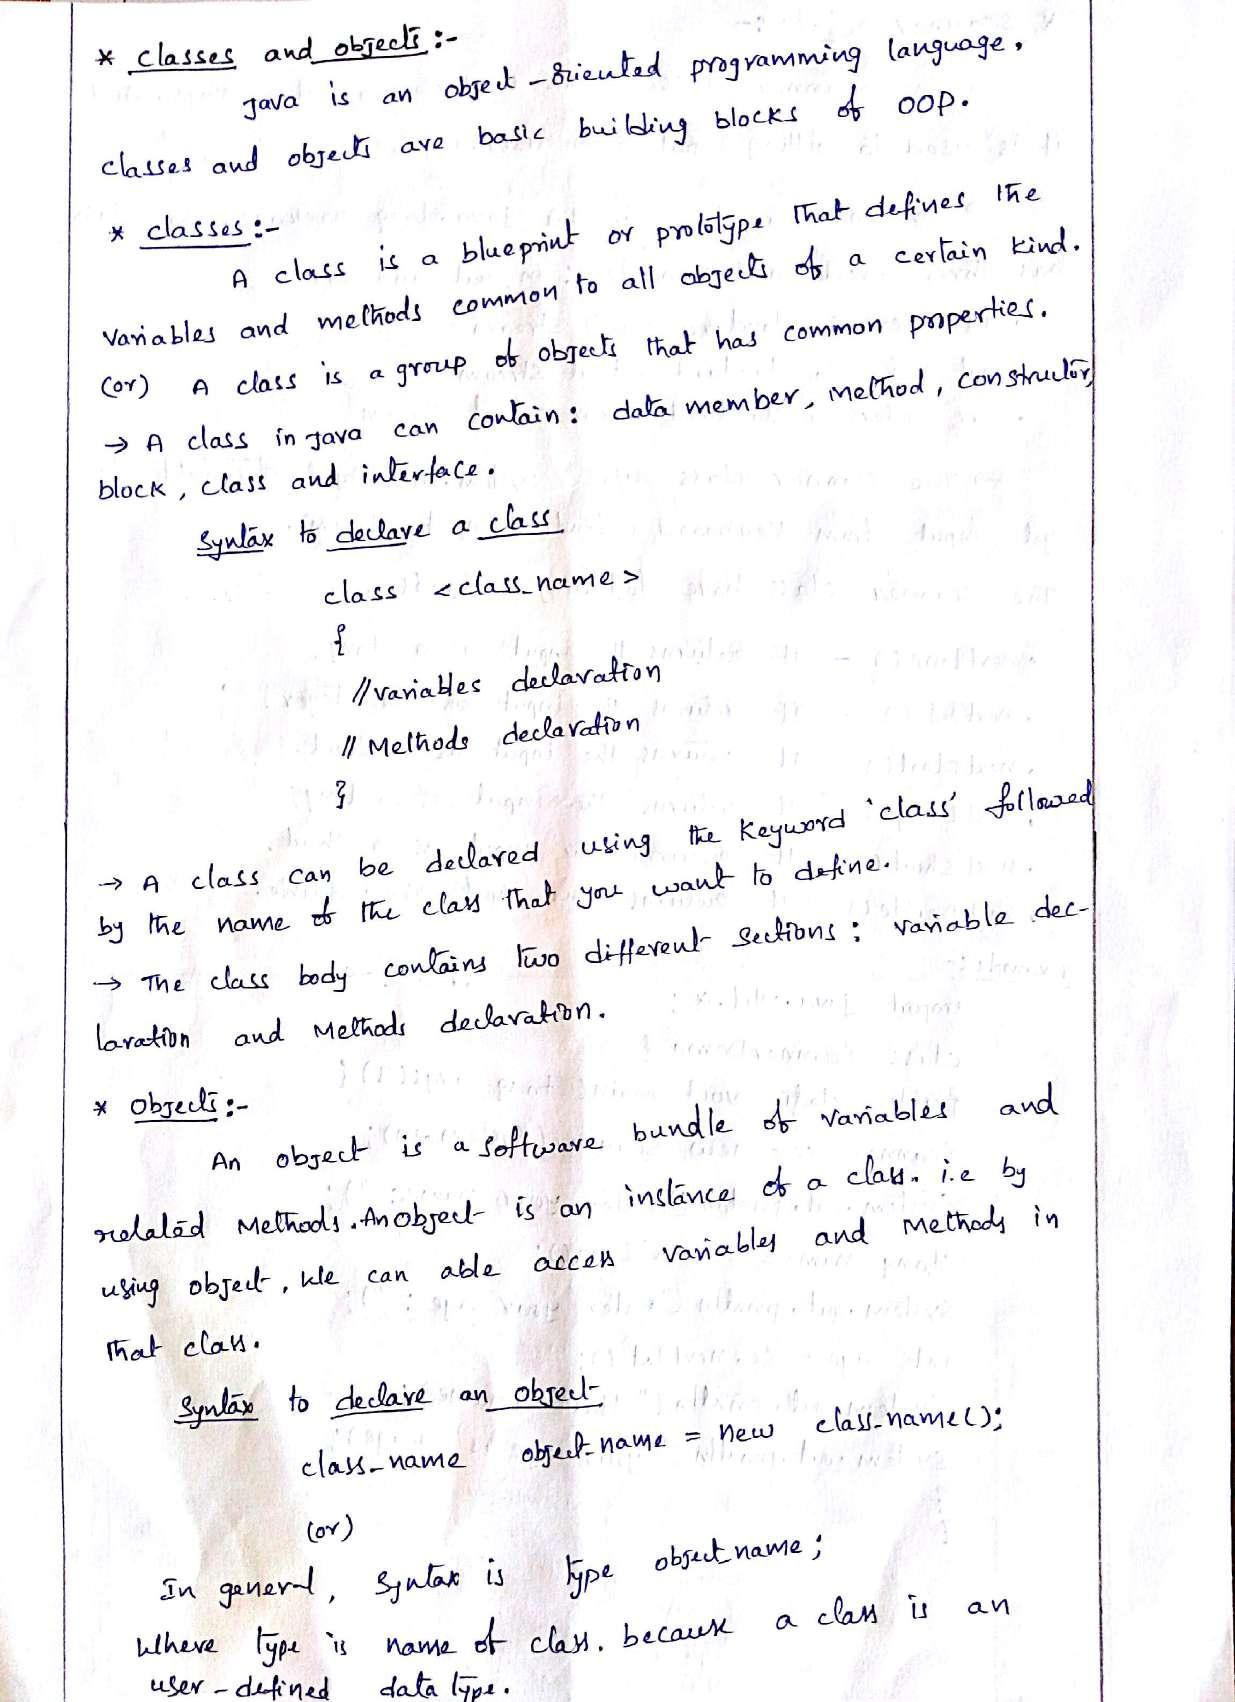 * classes and objects :-
Java is an object - oriented programming language.
classes and objects are basic building blocks of OOP.
* classes :-
A class is a blueprint or prototype that defines the
variables and methods common to all objects of a certain kind.
(or) A class is a group of objects that has common properties.
→ A class in java can contain : data member, method, constructor,
block, class and interface.
Syntax to declare a class
class <class_name>
{
//variables declaration
// Methods declaration
}
→ A class can be declared using the keyword 'class' followed
by the name of the class that you want to define.
→ The class body contains two different sections : variable dec-
laration and Methods declaration.
* Objects :-
An object is a software bundle of variables and
related Methods. An object is an instance of a class. i.e by
using object, We can able access variables and Methods in
that class.
Syntax to declare an object
class_name object_name = new class_name();
(or)
In general, Syntax is type object_name ;
Where type is name of class. because a class is an
user - defined data type.